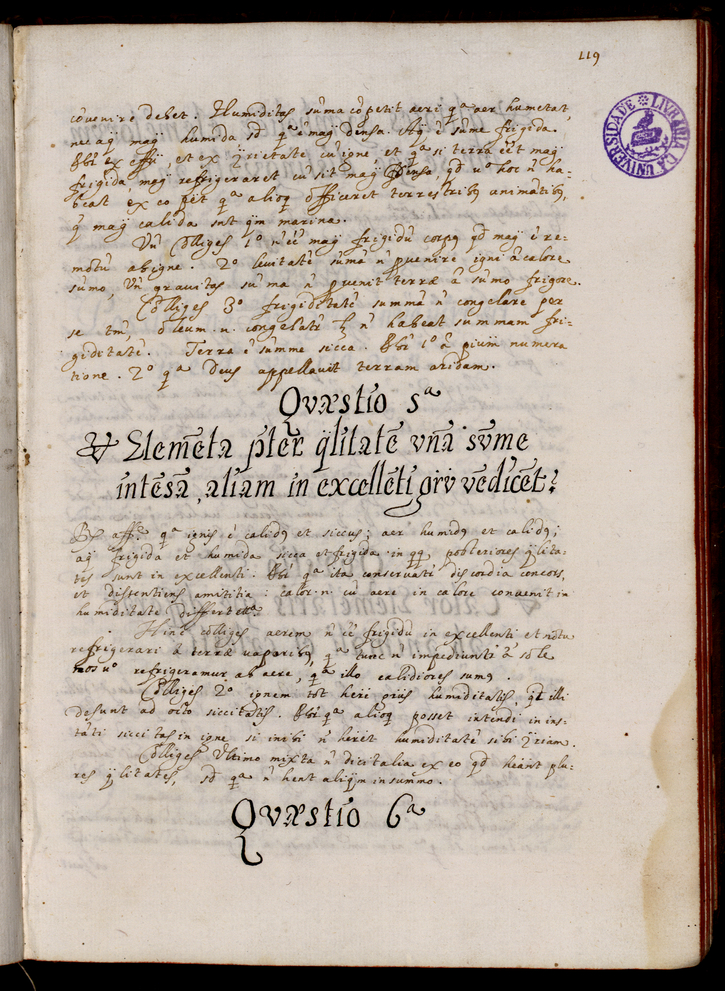 119
LIVRARIA DA UNIVERSIDADE
cõuenire debet. Humiditas sũma cõpetit aeri qᵃ aer humetat,
nec aq̃ mag̃ humida sd̃ qᵃ ẽ mag̃ densa. Aq̃ ẽ sũme frigida.
ex et ex ꝯrietate cũ igne, et qᵃ si terra eẽt mag̃
frigida, mag̃ refrigeraret cũ sit mag̃ densa, qd̃ uº hoc ñ ha-
beat ex eo pẽt qᵃ alioq̃ officeret terrestribꝰ animãtibꝰ,
q̃ mag̃ calida snt q̃m marina.
Vñ Colliges 1º ñ eẽ mag̃ frigidũ corpꝰ qd̃ mag̃ ẽ re-
motũ ab igne. 2º leuitatẽ sũmã ñ ꝓuenire igni à calore
sũmo, Vñ grauitas sũma ñ ꝓuenit terræ à sũmo frigore.
Colliges 3º frigiditatẽ summã ñ congelare per
se tm̃, oleum .n. congelatr̃ ñ habeat summam fri-
giditatẽ. Terra ẽ sũme sicca. 1º à piũ numera
tione. 2º qᵃ Deus appellauit terram aridam.
Qvæstio 5ᵃ
Elemẽta p̃ter q̃litatẽ vñã sṽme
intẽsã, aliam in excellẽti grv̄ vẽdicẽt?
affᵉ. qᵃ ignis ẽ calidꝰ et siccus; aer humidꝰ et calidꝰ;
aq̃ frigida et humida sicca et frigida in qq̃ posteriores q̃lita-
tes sunt in excellenti. qᵃ ita conseruatr̃ discordia concors,
et dissentiens amititia: calor .n. cũ aere in calore conuenit in
humiditate differt
Hinc colliges aerem ñ eẽ frigidũ in excellenti et nõtu
refrigerari à terræ uaporibꝰ, qᵃ tunc ñ impediuntr̃ à sole
nos uº refrigeramur ab aere, qᵃ illo calidiores sumꝰ.
Colliges 2º ignem tot heri ꝓius humiditatis, qd̃ illi
desunt ad octo siccitatis. qᵃ alioq̃ posset intendi in ins-
tãti siccitas in igne si inibi ñ heret humiditatẽ sibi ꝯriam.
Colliges Vltimo mixta ñ dici talia ex eo qd̃ heant plu-
res q̃litates, sd̃ qᵃ ñ hent aliq̃m in summo.
Qvæstio 6ᵃ